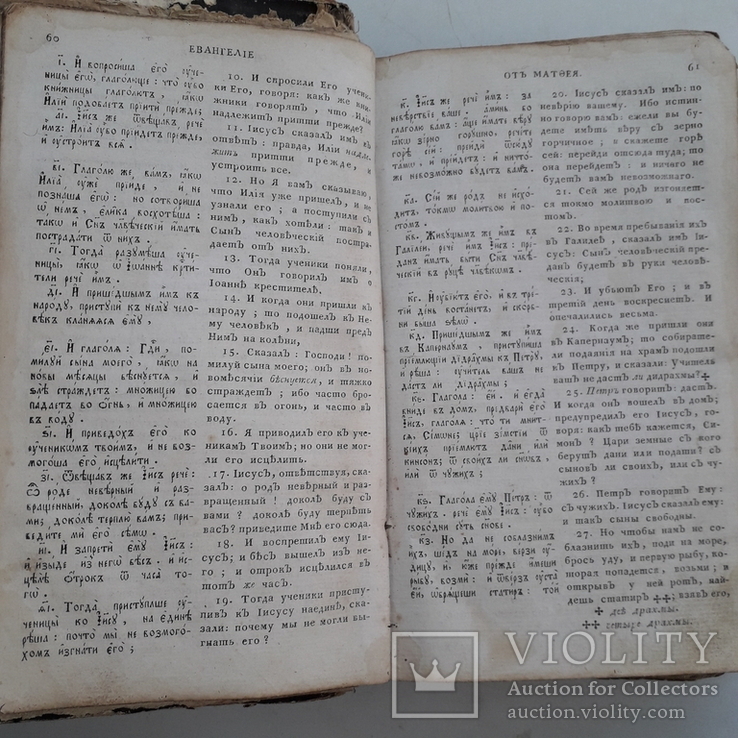 60
ЕВАНГЕЛІЕ
і҃. И҆ вопроси́ша є҆го̀ ᲂу҆че-
ницы̀ є҆гѡ̀, глаго́люще: что̀ ᲂу҆́бѡ
кни́жницы глаго́лютъ, ꙗ҆́кѡ
И҆лїѝ подоба́етъ прїитѝ пре́жде;
а҃і. І҆и҃съ же ѿвѣща́въ, речѐ
и҆̀мъ: И҆лїа̀ ᲂу҆́бѡ прїи́детъ пре́жде,
и҆ ᲂу҆стро́итъ всѧ̑.
в҃і. Глаго́лю же ва́мъ, ꙗ҆́кѡ
И҆лїа̀ ᲂу҆жѐ прїи́де, и҆ не
позна́ша є҆гѡ̀: но сотвори́ша
ѡ҆ не́мъ, є҆ли̑ка восхотѣ́ша:
та́кѡ и҆ Сн҃ъ чл҃вѣ́ческїй и҆́мать
пострада́ти ѿ ни́хъ.
г҃і. Тогда̀ разꙋмѣ́ша ᲂу҆че-
ницы̀, ꙗ҆́кѡ ѡ҆ І҆ѡа́ннѣ кр҃ти́-
тели речѐ и҆̀мъ.
д҃і. И҆ прише́дшымъ и҆̀мъ къ
наро́дꙋ, пристꙋпѝ къ немꙋ̀ чело-
вѣ́къ кла́нѧѧсѧ є҆мꙋ̀,
є҃і. И҆ глаго́лѧ: Гд҇и, по-
ми́лꙋй сы́на моего̀, ꙗ҆́кѡ на
но́вы мѣ́сѧцы бѣснꙋ́етсѧ, и҆
ѕлѣ̀ стра́ждетъ: мно́жицею бо
па́даетъ во ѻ҆́гнь, и҆ мно́жицею
въ во́дꙋ.
ѕ҃і. И҆ приведо́хъ є҆го̀ ко
ᲂу҆ченикѡ́мъ твои̑мъ, и҆ не возмо-
го́ша є҆го̀ и҆сцѣли́ти.
з҃і. Ѿвѣща́въ же І҆и҃съ речѐ:
ѽ ро́де невѣ́рный и҆ раз-
враще́нный, доко́лѣ бꙋ́дꙋ съ ва́-
ми; доко́лѣ терплю̀ ва́мъ; приве-
ди́те мѝ є҆го̀ сѣ́мѡ.
и҃і. И҆ запретѝ є҆мꙋ̀ І҆и҃съ:
и҆ и҆зы́де и҆з негѡ̀ бѣ́съ: и҆ и҆с-
цѣлѣ̀ ѻ҆́трокъ ѿ часа̀ то-
гѡ̀.
ѳ҃і. Тогда̀ пристꙋ́пльше ᲂу҆че-
ницы̀ ко І҆и҃сꙋ, на є҆ди́нѣ
рѣ́ша: почто̀ мы̀ не возмого́-
хомъ и҆згна́ти є҆гѡ̀;
10. И спросили Его учени-
ки Его, говоря: какъ же кни-
жники говорятъ, что Иліи
надлежитъ притти прежде?
11. Іисусъ сказалъ имъ въ
отвѣтъ: правда, Иліи надле-
житъ притти прежде, и
устроить все.
12. Но Я вамъ сказываю,
что Илія уже пришелъ, и не
узнали его; а поступили съ
нимъ, какъ хотѣли: такъ и
Сынъ человѣческій постра-
даетъ отъ нихъ.
13. Тогда ученики поняли,
что Онъ говорилъ имъ о
Іоаннѣ крестителѣ.
14. И когда они пришли къ
народу; то подошелъ къ Не-
му человѣкъ, и падши предъ
Нимъ на колѣни,
15. Сказалъ: Господи! по-
милуй сына моего; онъ въ но-
вомѣсячіи бѣснуется, и тяжко
страждетъ; ибо часто бро-
сается въ огонь, и часто въ
воду.
16. Я приводилъ его къ уче-
никамъ Твоимъ; но они не мо-
гли его исцѣлить.
17. Іисусъ, отвѣтствуя, ска-
залъ: о родъ невѣрный и раз-
вращенный! доколѣ буду съ
вами? доколѣ буду терпѣть
васъ? приведите Мнѣ его сюда.
18. И воспретилъ ему Іи-
сусъ; и бѣсъ вышелъ изъ не-
го; и отрокъ исцѣлился въ
тотъ же часъ.
19. Тогда ученики присту-
пя къ Іисусу наединѣ, ска-
зали: почему мы не могли вы-
гнать его?
ОТЪ МАТѲЕЯ.
61
к҃. І҆и҃съ же речѐ и҆̀мъ: за
невѣ́рствїе ва́ше. а҆ми́нь бо
глаго́лю ва́мъ: а҆́ще и҆́мате вѣ́рꙋ
ꙗ҆́кѡ зерно̀ горꙋ́шно, рече́те
горѣ̀ се́й: прейдѝ ѿсю́дꙋ
та́мѡ, и҆ пре́йдетъ: и҆ ничто́-
же невозмо́жно бꙋ́детъ ва́мъ.
к҃а. Се́й же ро́дъ не и҆схо́-
дитъ, то́кмѡ моли́твою и҆ по-
сто́мъ.
к҃в. Живꙋ́щымъ же и҆̀мъ въ
Галїле́и, речѐ и҆̀мъ І҆и҃съ: пре́-
данъ и҆́мать бы́ти Сн҃ъ чл҃вѣ́-
ческїй въ рꙋ́цѣ чл҃вѣ́кѡмъ.
к҃г. И҆ ᲂу҆бїю́тъ є҆го̀, и҆ въ тре́-
тїй де́нь воста́нетъ: и҆ ско́рб-
ни бы́ша ѕѣлѡ̀.
к҃д. Прише́дшымъ же и҆̀мъ
въ Каперна́ꙋмъ, пристꙋпи́ша
прїе́млющїи дїдра̑хмы къ Петрꙋ̀,
и҆ рѣ́ша: ᲂу҆чи́тель ва́шъ не
да́стъ ли дїдра̑хмы;
к҃є. Глаго́ла: є҆́й. и҆ є҆гда̀
вни́де въ до́мъ, предварѝ є҆го̀
І҆и҃съ, глаго́лѧ: что́ ти мни́т-
сѧ, Сі́мѡне; ца́рїе зе́мстїи ѿ
кі́ихъ прїе́млютъ да̑ни и҆лѝ
кинсо́нъ; ѿ свои́хъ ли сынѡ́въ,
и҆лѝ ѿ чꙋжи́хъ;
к҃ѕ. Глаго́ла є҆мꙋ̀ Пе́тръ: ѿ
чꙋжи́хъ. речѐ є҆мꙋ̀ І҆и҃съ: ᲂу҆́бѡ
свобо́дни сꙋ́ть сы́нове.
к҃з. Но да не соблазни́мъ
и҆́хъ, ше́дъ на мо́ре, ве́рзи ᲂу҆́-
дицꙋ, и҆ ю҆́же пре́жде и҆́меши
ры́бꙋ, возмѝ: и҆ ѿве́рзъ ᲂу҆ста̀
є҆́й, ѡ҆брѧ́щеши стати́ръ: то́й
20. Іисусъ сказалъ имъ: по
невѣрію вашему. Ибо исти-
нно говорю вамъ: ежели вы бу-
дете имѣть вѣру съ зерно
горчичное; и скажете горѣ
сей: перейди отсюда туда; то
она перейдетъ: и ничего не
будетъ вамъ невозможнаго.
21. Сей же родъ изгоняет-
ся токмо молитвою и пос-
томъ.
22. Во время пребыванія ихъ
въ Галилеѣ, сказалъ имъ Іи-
сусъ: Сынъ человѣческій пре-
данъ будетъ въ руки человѣ-
ческія;
23. И убьютъ Его; и въ
третій день воскреснетъ. И
опечалились весьма.
24. Когда же пришли они
въ Капернаумъ; то собирате-
ли подаянія на храмъ подошли
къ Петру, и сказали: Учитель
вашъ не дастъ ли дидрахмы?
25. Петръ говоритъ: дастъ.
И когда онъ вошелъ въ домъ;
предупредилъ его Іисусъ, го-
воря: какъ тебѣ кажется, Си-
монъ? Цари земные съ кого
берутъ дани или подати? съ
сыновъ ли своихъ, или съ чу-
жихъ?
26. Петръ говоритъ Ему:
съ чужихъ. Іисусъ сказалъ ему:
и такъ сыны свободны.
27. Но чтобы намъ не со-
блазнить ихъ, поди на море,
брось уду, и первую рыбу, ко-
торая попадется, возьми; и
открывъ у ней ротъ, най-
дешь статиръ; взявъ его,
двѣ драхмы.
четыре драхмы.
VIOLITY
Auction for Collectors
auction.violity.com